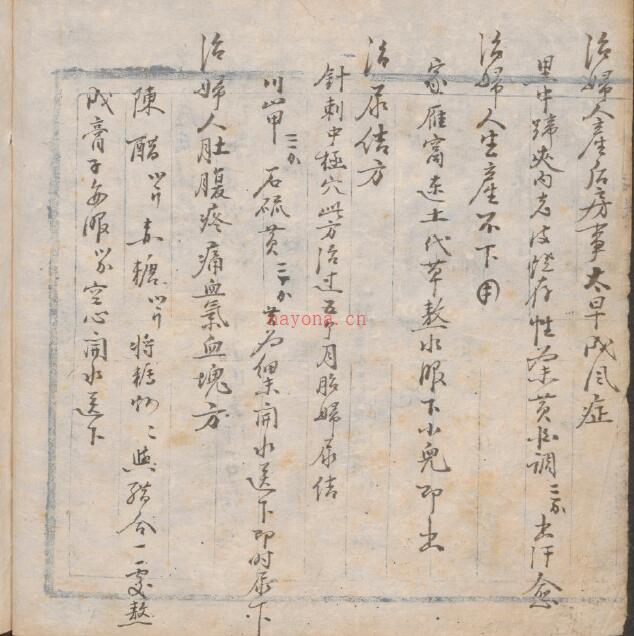 治婦人產后房事太早成风症
黑牛蹄夾內老皮燒存性 黃酒調三分出汗愈
治婦人生產不下用
家雁窩連土代草熬水服下小兒即出
治尿結方
針刺中極穴此方治过五个月胎婦尿结
川山甲三分 石硫黄三分 共为細末開水送下即时尿下
治婦人肚腹疼痛血氣血塊方
陳醋 赤糖 將糖炒 與醋合一處熬
成膏子每服 空心開水送下
nayona.cn